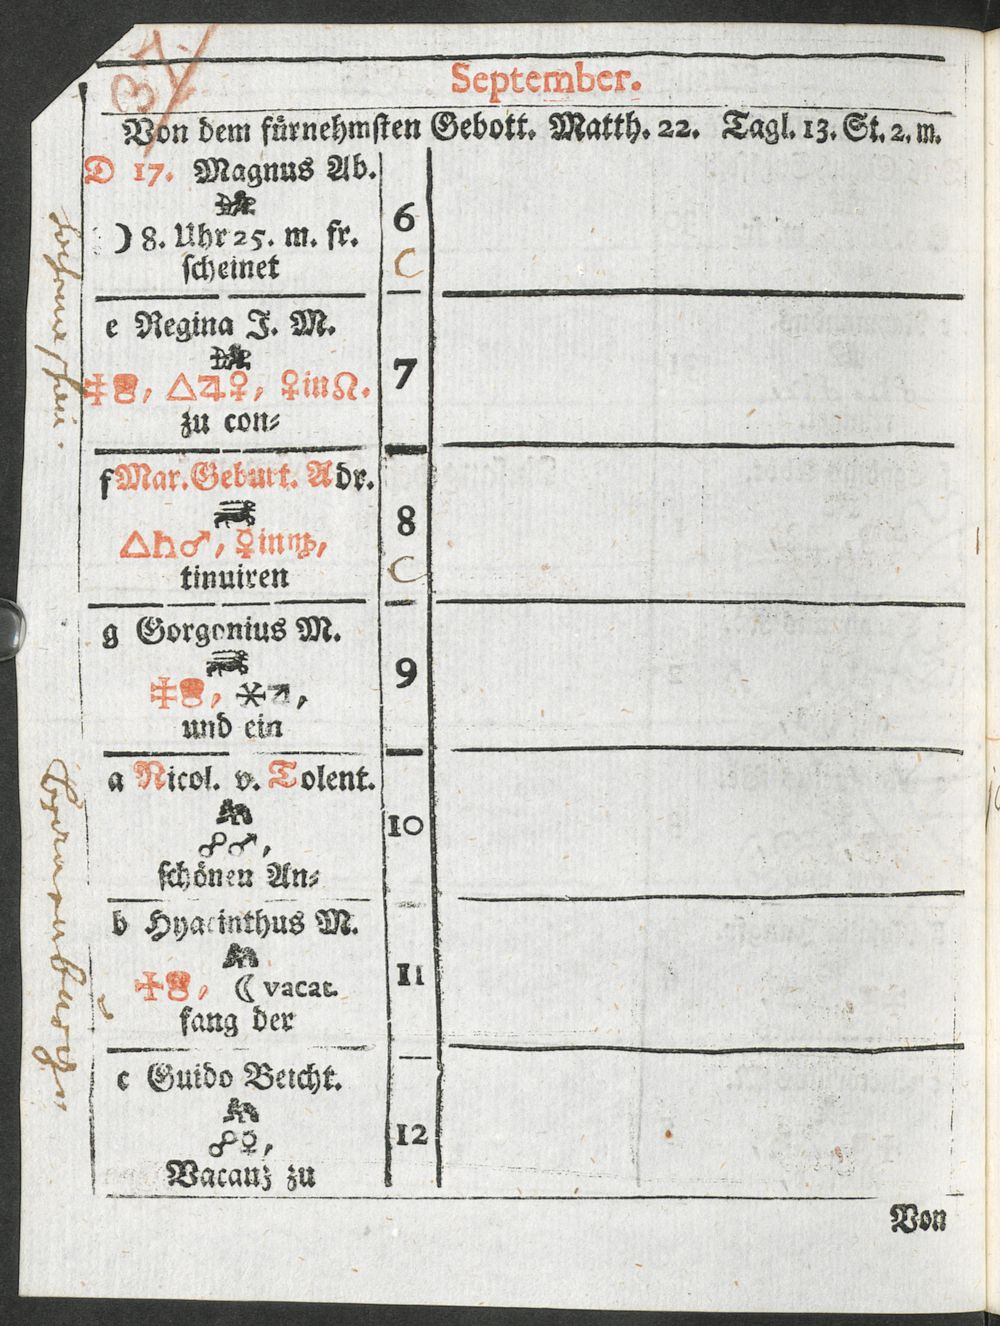 37.
September.
Von dem fürnehmsten Gebott. Matth. 22. Tagl. 13. St. 2. m.
D 17. Magnus Ab.
6
☽ 8. Uhr 25. m. fr.
C
scheinet
e Regina J. M.
7
△♃♀, ♀in♌.
zu con⸗
f Mar. Geburt. Adr.
8
△♄♂, ☿in♍,
C
tinuiren
g Gorgonius M.
9
und ein
a Nicol. v. Tolent.
10
☍♂,
schönen An⸗
b Hyacinthus M.
11
☾ vacat.
fang der
c Guido Beicht.
12
☍☿,
Vacanz zu
Von